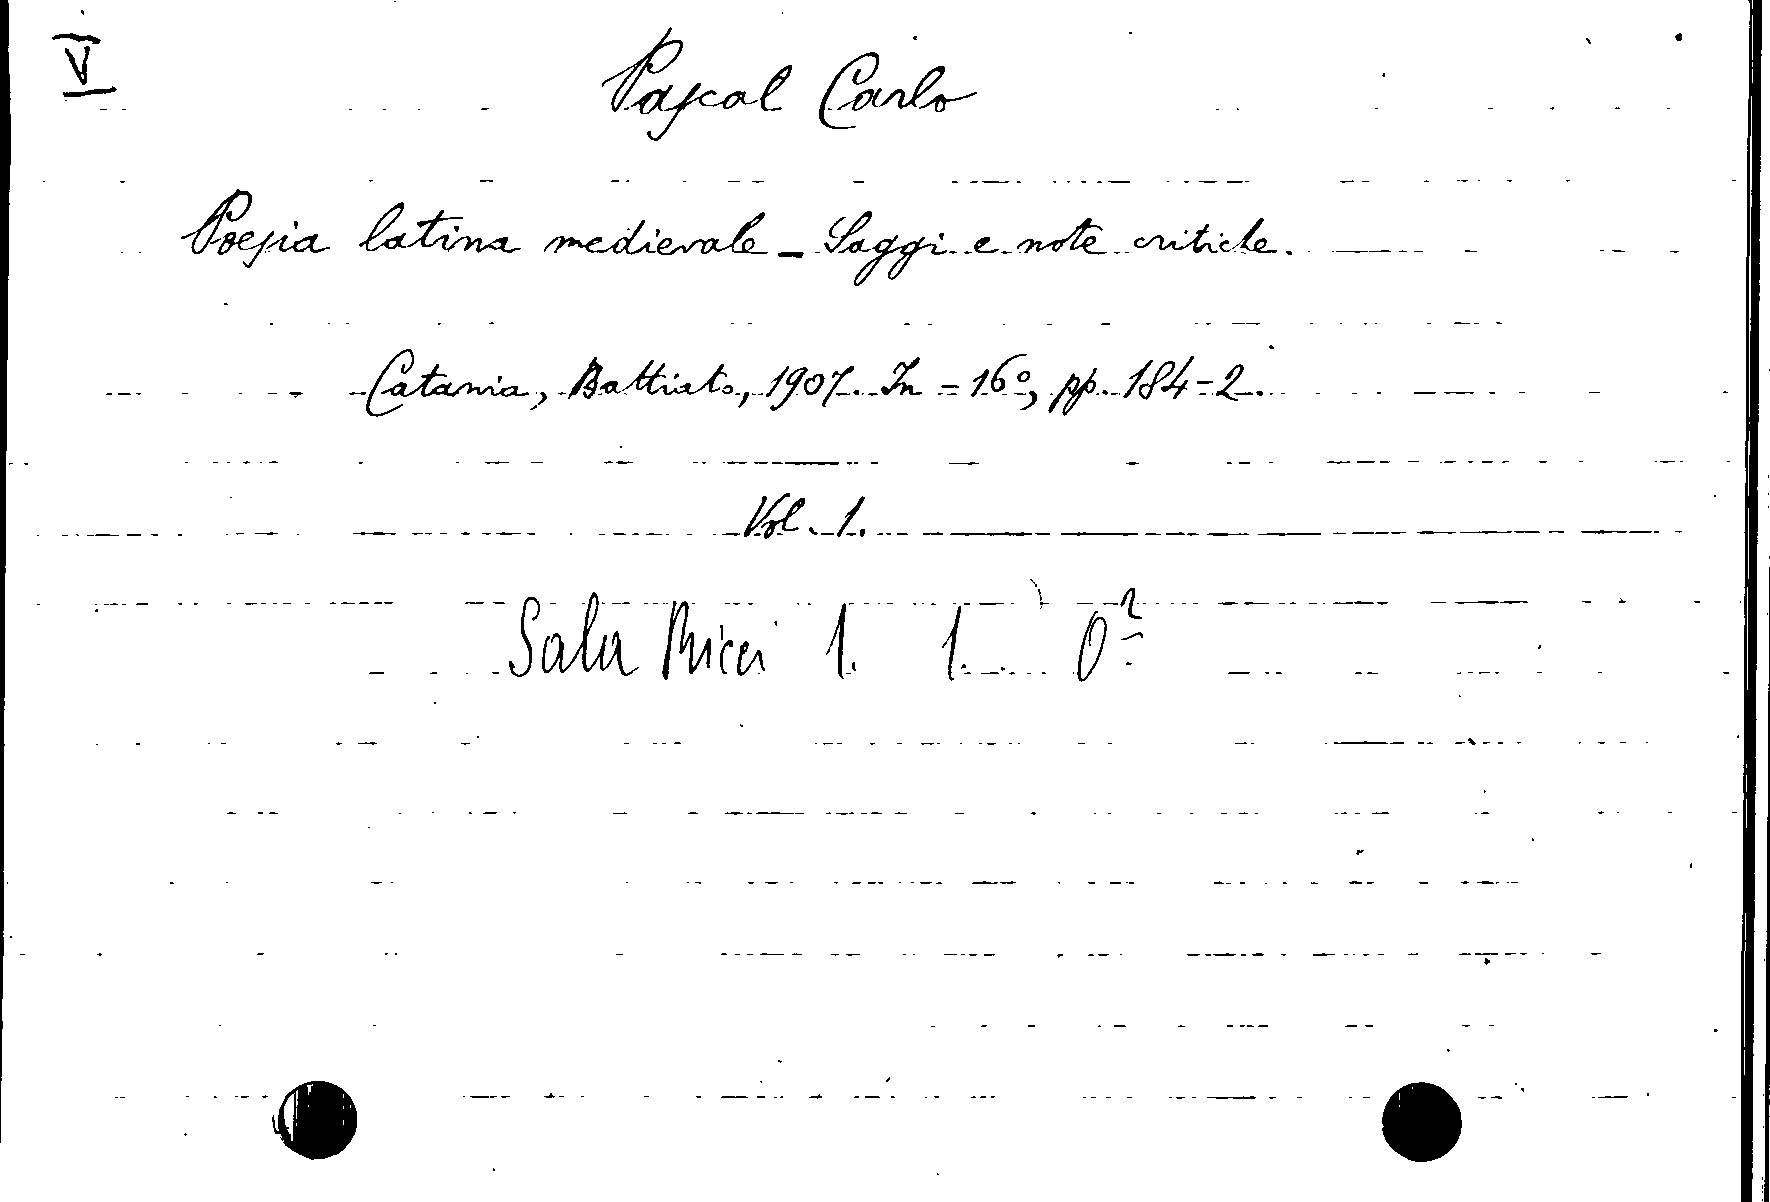 V
Pascal Carlo
Poesia latina medievale - Saggi e note critiche.
Catania, Battiato, 1907. In - 16º, pp. 184-2.
Vol. 1.
Sala Ricci 1. 1. 0²